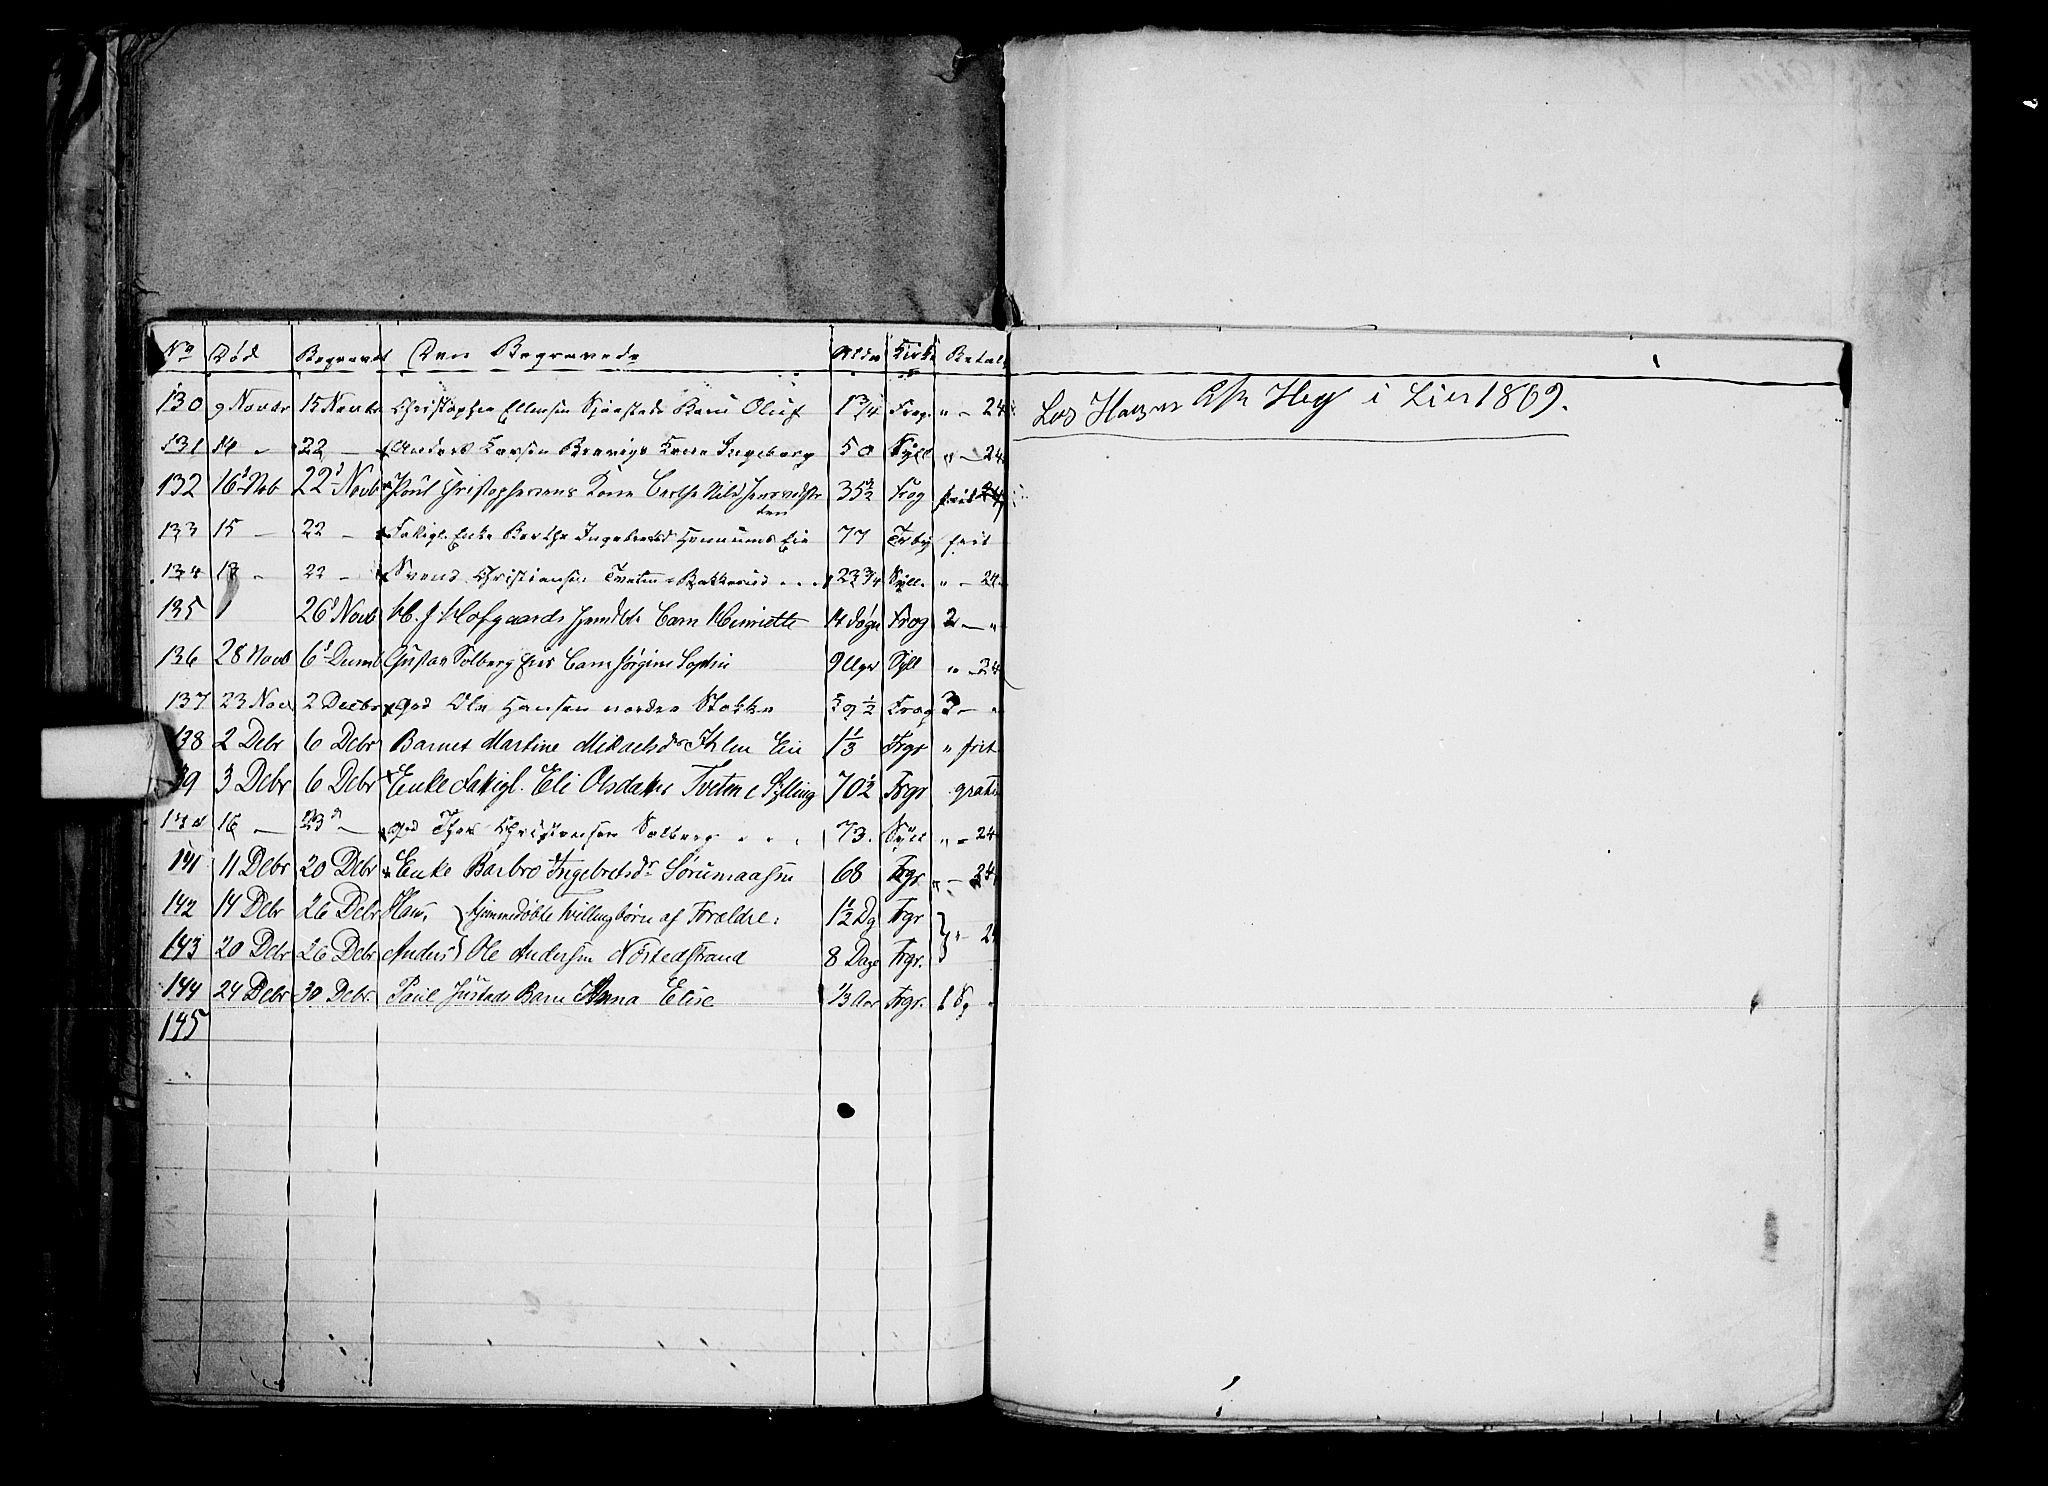 No Død Begravet Den Begravede Alder Kirke Betalt
130 9 Novbr 15 Novbr Christopher Ellensen Sjørstads Barn Oluf 1 3/4 Frog. " - 24
131 14 " 22 - Anders Larsen Kone Ingeborg 50 Syll " - 24
132 16 Nob 22 Novb Poul Christophersens Kone Berthe Nilsd 35 1/2 Frog frit
133 15 - 22 - Fattigl. Enke Berthe Ingebretsd Hennums Eie 77 frit
134 18 " 22 - Svend Christiansen Tveten - Bakkerud 23 3/4 Syll. " - 24
135 26 Novb H. J. Hofgaards Barn Henriette 14 Døgn Frog 2 - "
136 28 Novb 6 Gustav Solberg Eies Barn Jørgine Sophie 9 Uger Syll " - 24
137 23 Nov 2 Decbr Gd Ole Hansen nordre Stokke 59 1/2 Frog 3 - "
138 2 Debr 6 Debr Barnet Martine Mikaelsdr Ihlen Eie 1 1/3 Frgr " frit
139 3 Debr 6 Debr Enke Fattigl. Eli Olsdatter Tveten i Sylling 70 1/2 Frgr gratis
16 - 23 - Gd Thor Christensen Solberg 73. Syll " - 24
141 11 Debr 20 Debr Enke Barbro Ingebretsdr Sørumaasen 68 Frgr " - 24
142 14 Debr 26 Debr Hans, hjemmedøbte Tvillingbørn af Forældre: 1 1/2 Dg Frgr
143 20 Debr 26 Debr Anders Ole Andersen Nøstedstrand 8 Dage Frgr. " - 24
144 24 Debr 30 Debr. Paul Justads Barn Anna Elise 1/3 Aar Frgr. 1 Sp
145
Hos i Lier 1869.